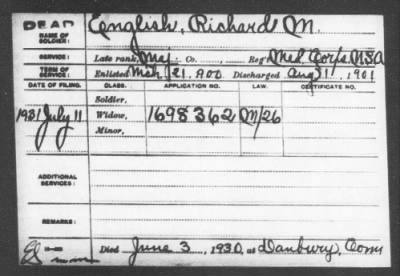 DEAD English, Richard M.
NAME OF SOLDIER:
SERVICE: Late rank, Maj Co. Reg't Med. Corps USA
TERM OF SERVICE: Enlisted Mch 21, 1900 Discharged Aug 11, 1901
DATE OF FILING. CLASS. APPLICATION NO. LAW. CERTIFICATE NO.
Soldier,
1931 July 11 Widow, 1698362 M/26
Minor,
ADDITIONAL SERVICES:
REMARKS:
Died June 3, 1930, at Danbury, Conn